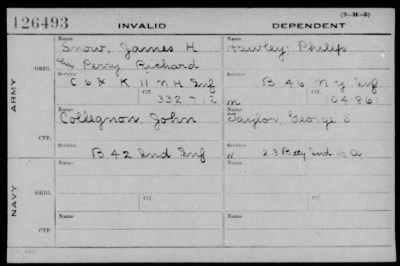 126493 INVALID DEPENDENT (3-H-5)
Name Name
Snow, James H Hawley Philip
alias Perry Richard
ARMY
ORIG. Service Service
C 6 & K 11 N H Inf B 46 N Y Inf
Ctf. Ctf.
332712 m 104861
Name Name
Collegnon, John Taylor, George S
CTF. Service Service
B 42 Ind Inf 23 Baty Ind L A
NAVY
Name Name
ORIG. Service Service
Ctf. Ctf.
Name Name
CTF. Service Service